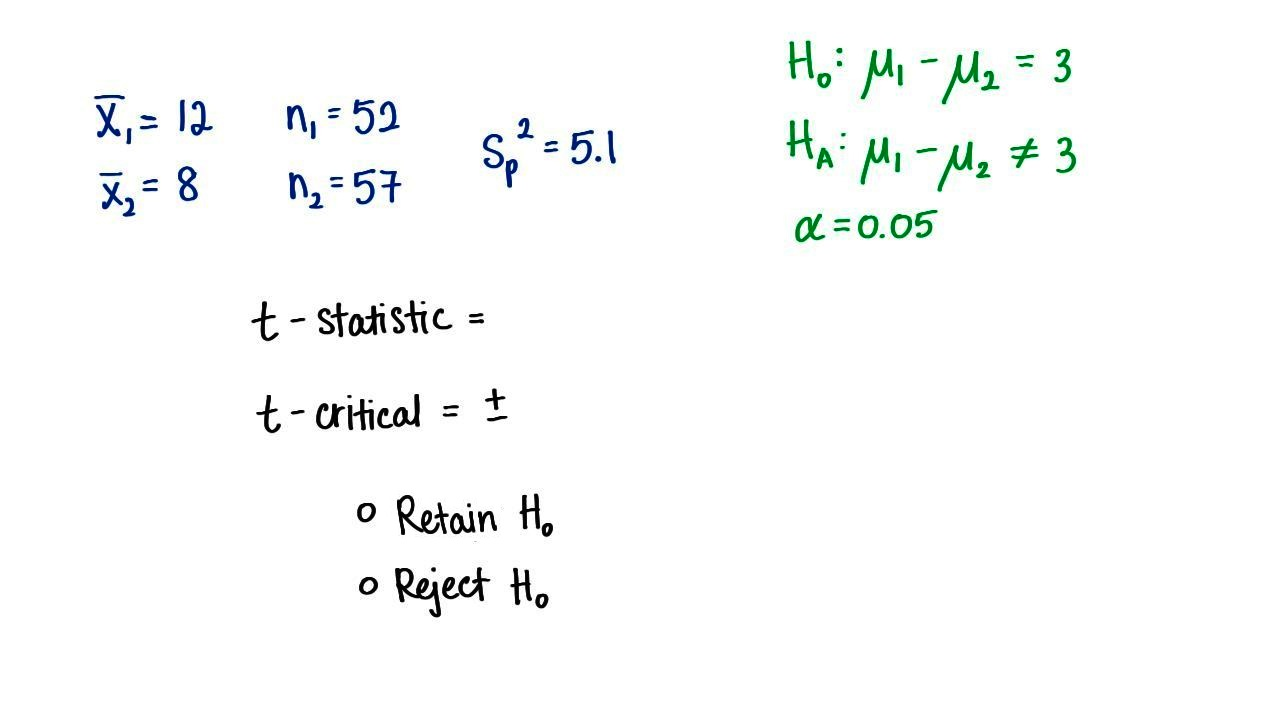 x̄₁ = 12
n₁ = 52
x̄₂ = 8
n₂ = 57
Sₚ² = 5.1
H₀: μ₁ - μ₂ = 3
H_A: μ₁ - μ₂ ≠ 3
α = 0.05
t - statistic =
t - critical = ±
Retain H₀
Reject H₀